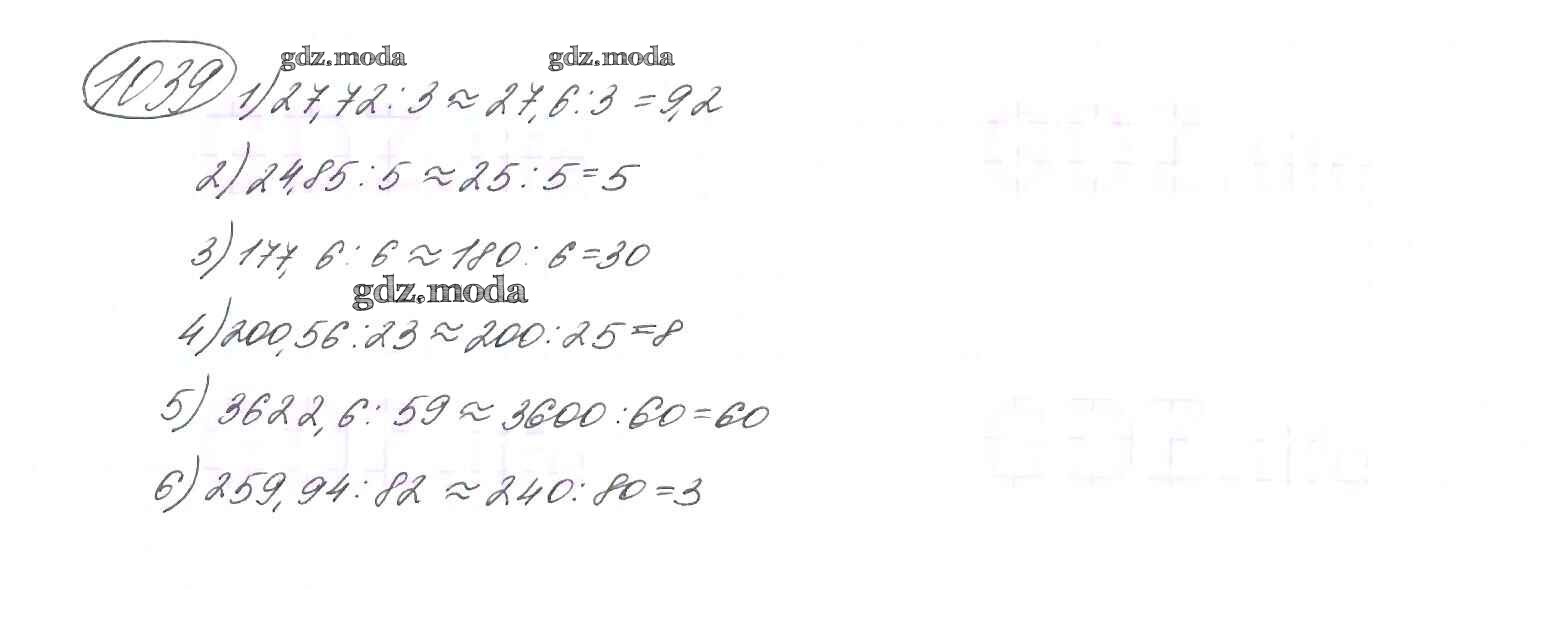 gdz.moda gdz.moda
1039 1) 27,72 : 3 ≈ 27,6 : 3 = 9,2
2) 24,85 : 5 ≈ 25 : 5 = 5
3) 177,6 : 6 ≈ 180 : 6 = 30
gdz.moda
4) 200,56 : 23 ≈ 200 : 25 = 8
5) 3622,6 : 59 ≈ 3600 : 60 = 60
6) 259,94 : 82 ≈ 240 : 80 = 3